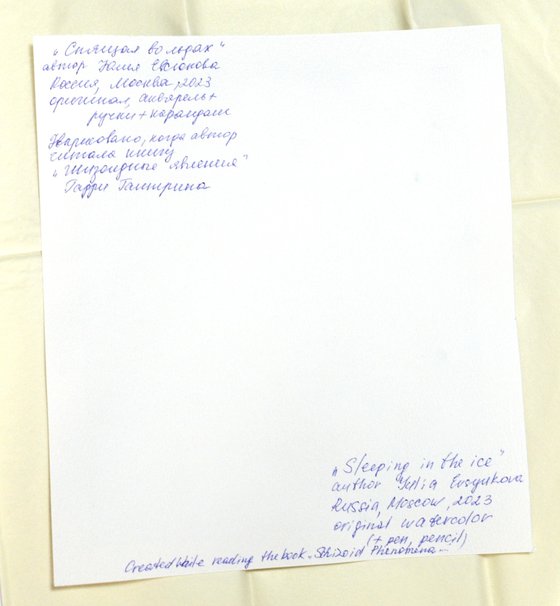 „Спящая во льдах"
автор Юлия Евсюкова
Россия, Москва, 2023
оригинал, акварель+
ручки+карандаш
Нарисовано, когда автор
читала книгу
„Шизоидные явления"
Гарри Гантрипа
„Sleeping in the ice"
author Yulia Evsyukova
Russia, Moscow, 2023
original watercolor
(+ pen, pencil)
Created while reading the book „Schizoid Phenomena...